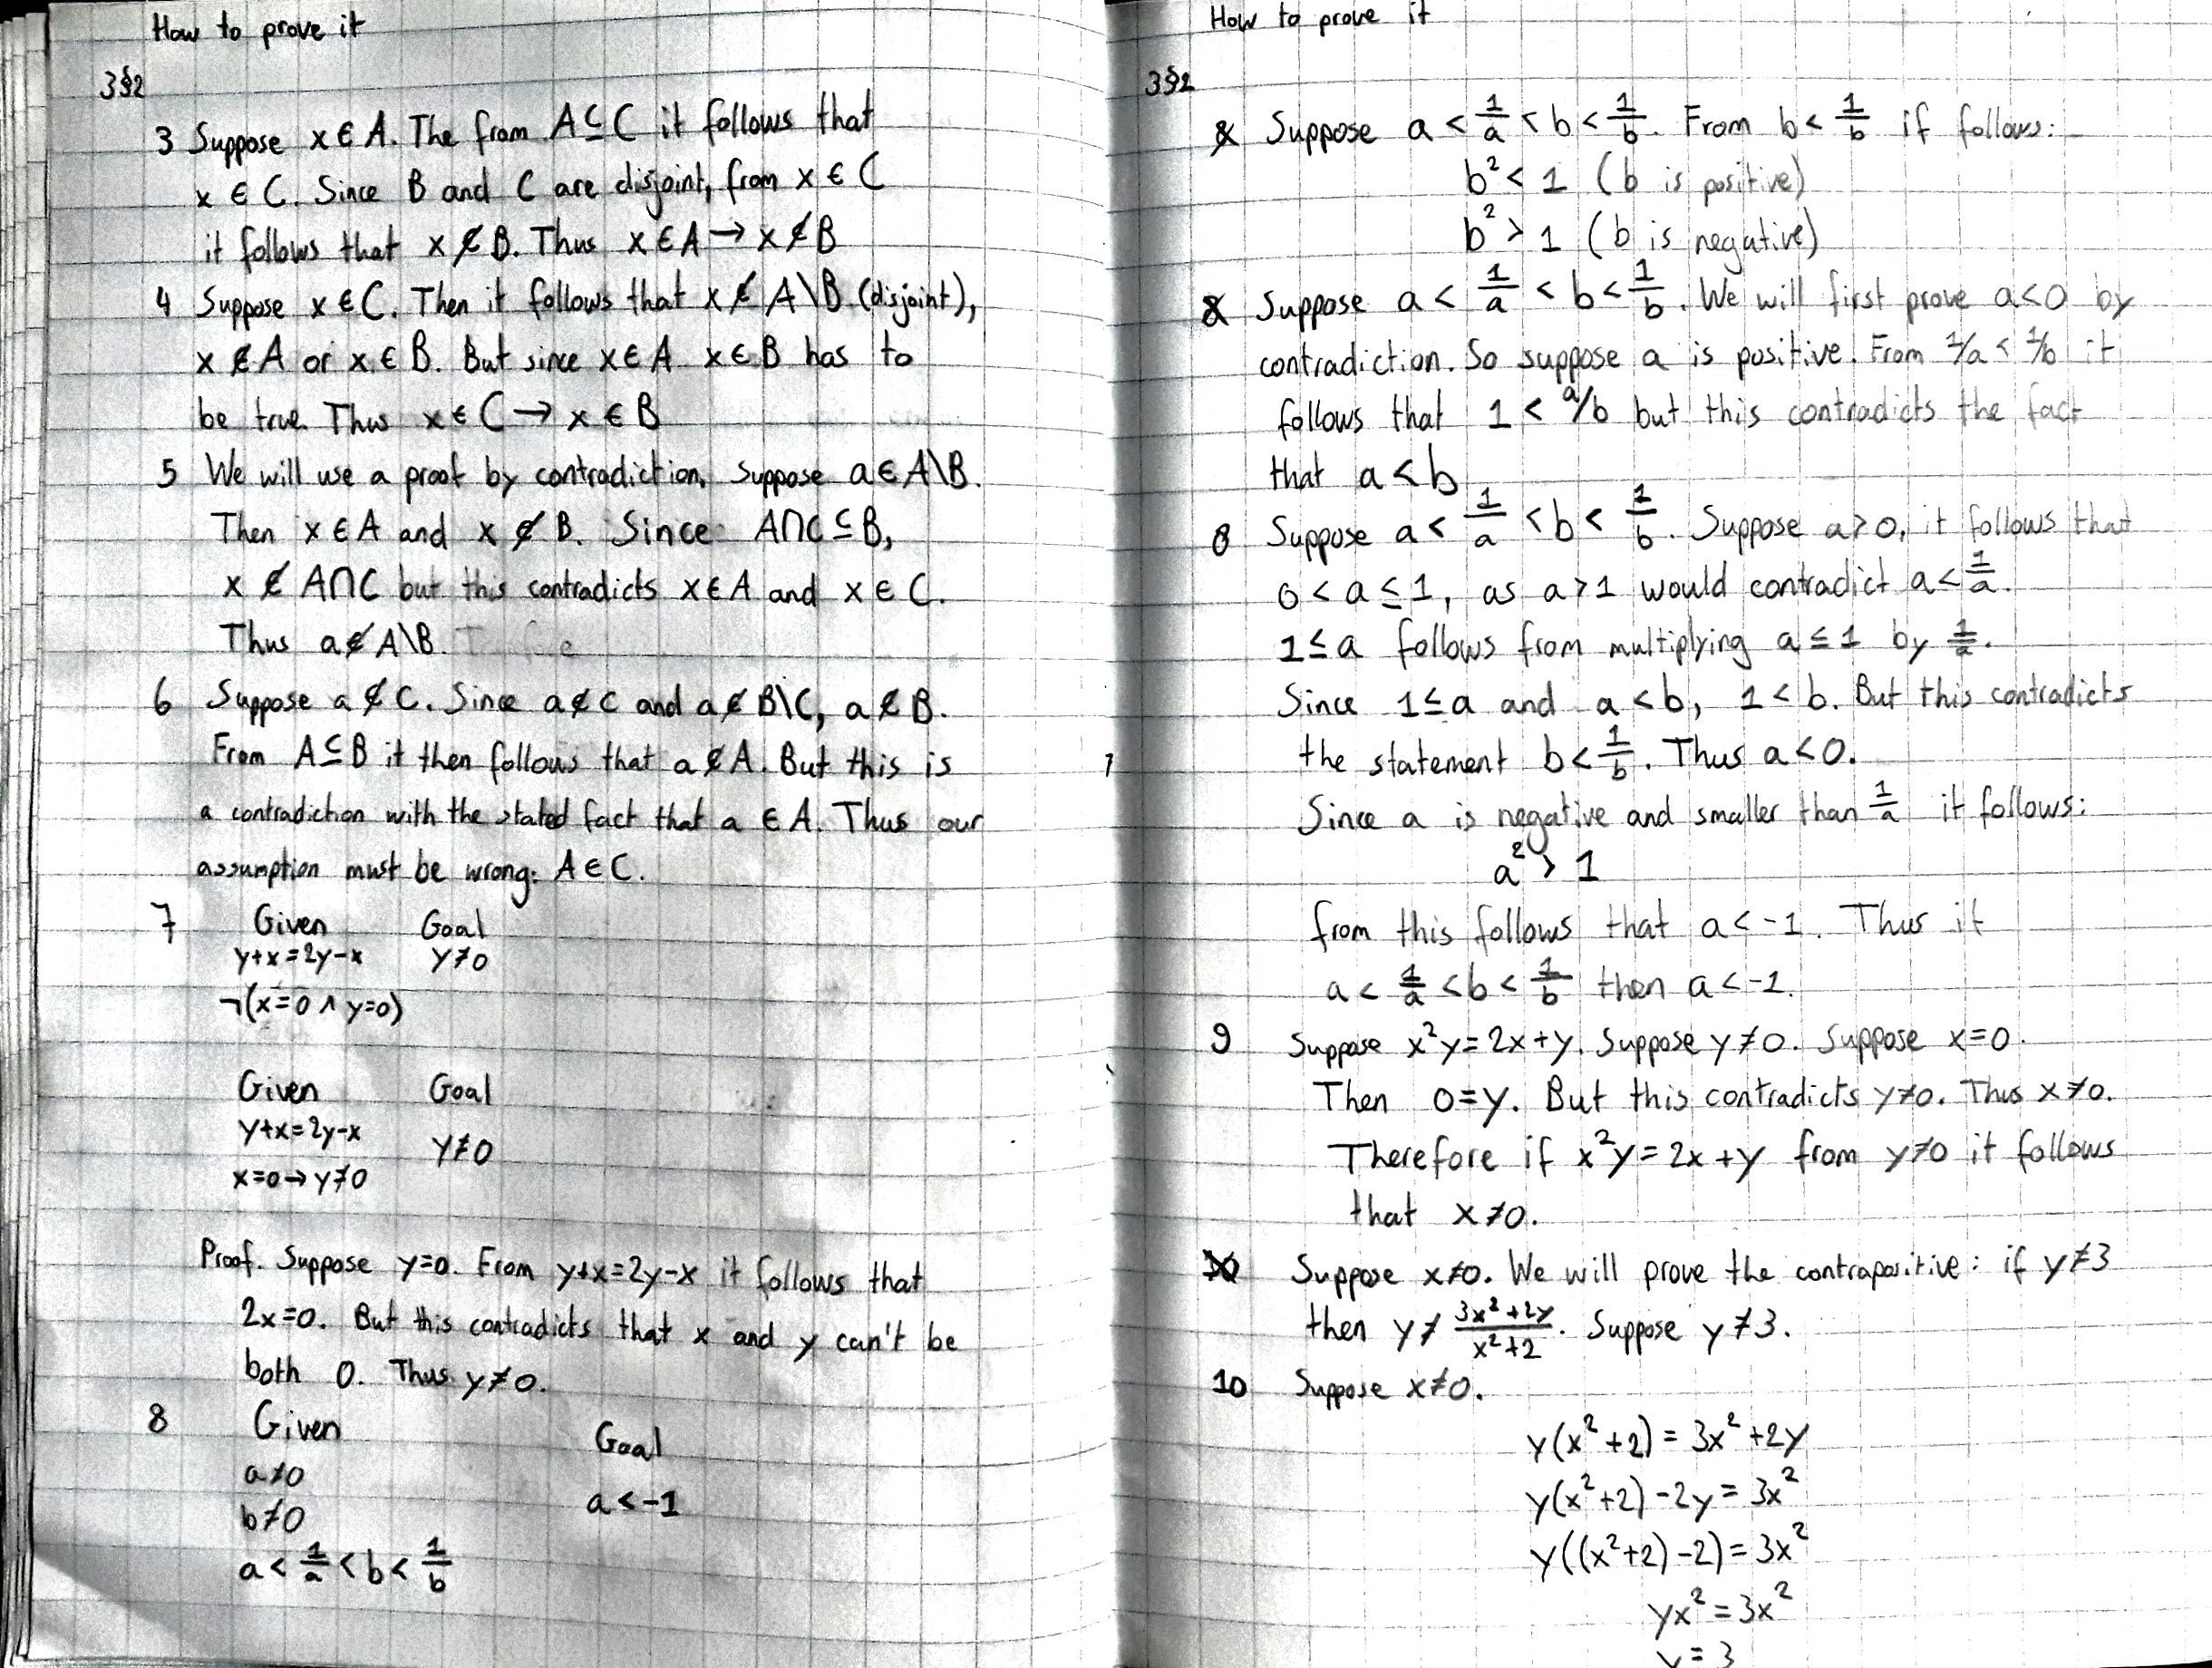 How to prove it
3§2
3 Suppose x ∈ A. The from A ⊆ C it follows that
x ∈ C. Since B and C are disjoint, from x ∈ C
it follows that x ∉ B. Thus x ∈ A → x ∉ B
4 Suppose x ∈ C. Then it follows that x ∉ A\B (disjoint),
x ∉ A or x ∈ B. But since x ∈ A x ∈ B has to
be true. Thus x ∈ C → x ∈ B
5 We will use a proof by contradiction. Suppose a ∈ A\B.
Then x ∈ A and x ∉ B. Since A∩C ⊆ B,
x ∉ A∩C but this contradicts x ∈ A and x ∈ C.
Thus a ∉ A\B.
6 Suppose a ∉ C. Since a ∉ C and a ∉ B\C, a ∉ B.
From A ⊆ B it then follows that a ∉ A. But this is
a contradiction with the stated fact that a ∈ A. Thus our
assumption must be wrong: A ∈ C.
7 Given Goal
y+x=2y-x y≠0
¬(x=0 ∧ y=0)
Given Goal
y+x=2y-x y≠0
x=0→y≠0
Proof. Suppose y=0. From y+x=2y-x it follows that
2x=0. But this contradicts that x and y can't be
both 0. Thus y≠0.
8 Given Goal
a≠0
b≠0 a<-1
a < 1/a < b < 1/b
How to prove it
3§2
8 Suppose a < 1/a < b < 1/b. From b < 1/b if follows:
b² < 1 (b is positive)
b² > 1 (b is negative)
8 Suppose a < 1/a < b < 1/b. We will first prove a<0 by
contradiction. So suppose a is positive. From 1/a < 1/b it
follows that 1 < a/b but this contradicts the fact
that a < b
8 Suppose a < 1/a < b < 1/b. Suppose a>0, it follows that
0 < a ≤ 1, as a>1 would contradict a < 1/a.
1 ≤ a follows from multiplying a ≤ 1 by 1/a.
Since 1 ≤ a and a < b, 1 < b. But this contradicts
the statement b < 1/b. Thus a<0.
Since a is negative and smaller than 1/a it follows:
a² > 1
from this follows that a < -1. Thus it
a < 1/a < b < 1/b then a < -1.
9 Suppose x²y = 2x+y. Suppose y≠0. Suppose x=0.
Then 0=y. But this contradicts y≠0. Thus x≠0.
Therefore if x²y = 2x+y from y≠0 it follows
that x≠0.
10 Suppose x≠0. We will prove the contrapositive: if y≠3
then y ≠ (3x²+2y)/(x²+2). Suppose y≠3.
10 Suppose x≠0.
y(x²+2) = 3x²+2y
y(x²+2)-2y = 3x²
y((x²+2)-2) = 3x²
yx² = 3x²
y = 3